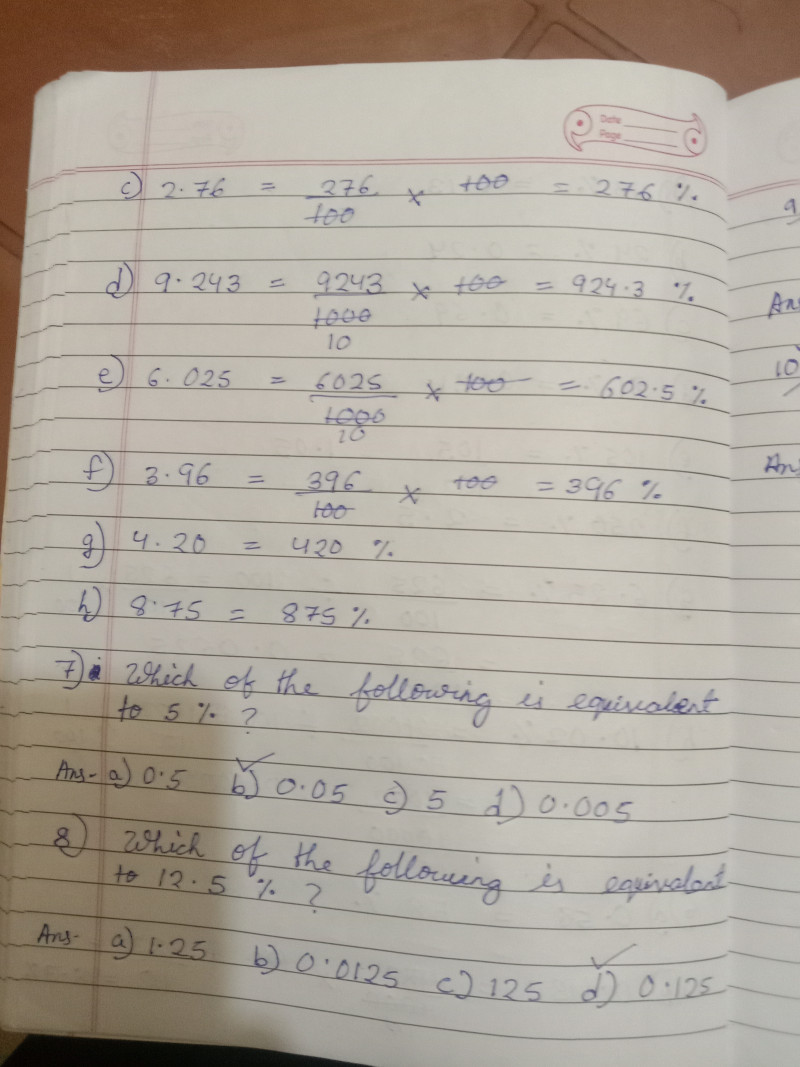 Date
Page
c) 2.76 = 276/100 × 100 = 276 %.
d) 9.243 = 9243/1000 × 100 = 924.3 %
10
e) 6.025 = 6025/1000 × 100 = 602.5 %
10
f) 3.96 = 396/100 × 100 = 396 %
g) 4.20 = 420 %.
h) 8.75 = 875 %.
7) Which of the following is equivalent
to 5 % ?
Ans- a) 0.5 b) 0.05 c) 5 d) 0.005
8) Which of the following is equivalent
to 12.5 % ?
Ans- a) 1.25 b) 0.0125 c) 125 d) 0.125
9
Ans
10
Ans